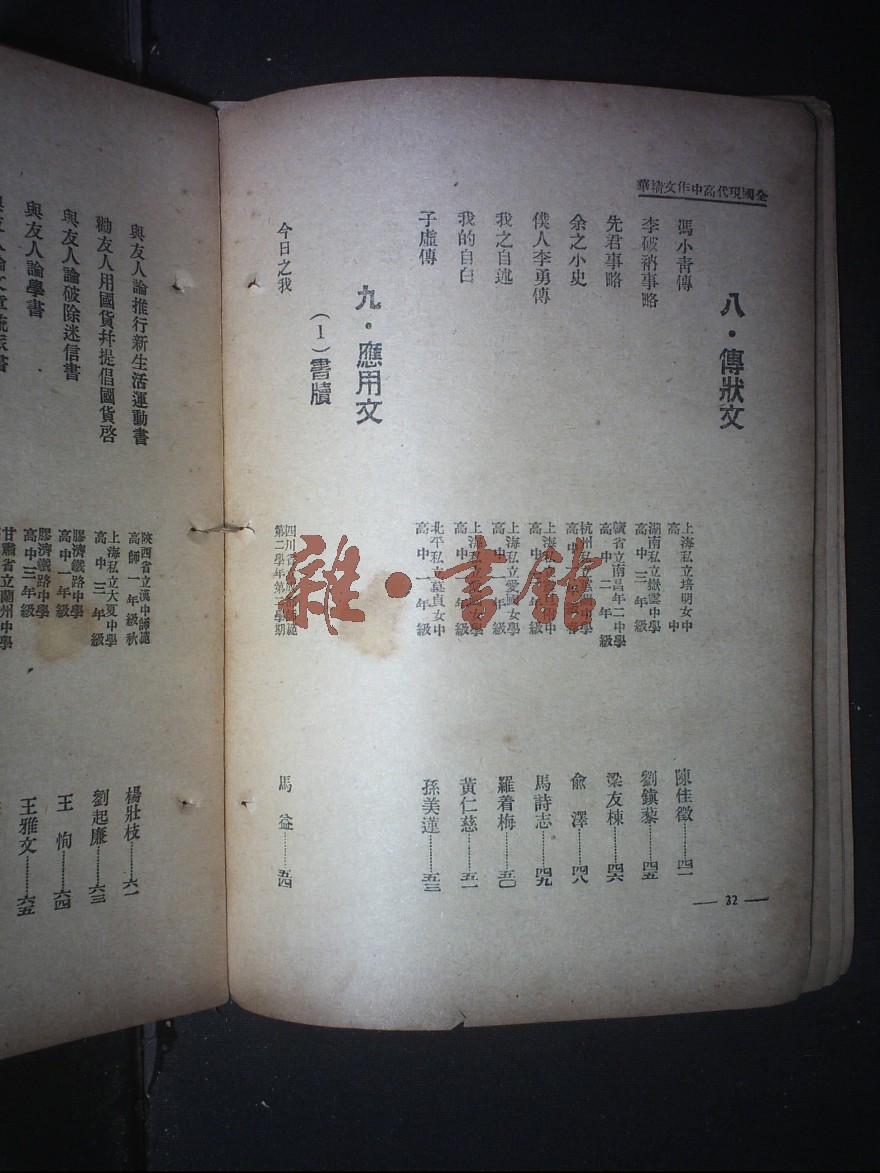 全國現代高中作文精華
八・傳狀文
馮小青傳
上海私立培明女中
高中
陳佳徵……四一
李破衲事略
湖南私立嶽雲中學
高中三年級
劉鎮藜……四五
先君事略
省立南昌年二中學
高中二年級
梁友棟……四六
余之小史
杭州私立
高中
俞澤……四八
僕人李勇傳
上海私
高中
馬詩志……四九
我之自述
上海私立愛國女學
高中一年級
羅着梅……五〇
我的自白
上海
高中
黃仁慈……五一
子虛傳
北平私立慕貞女中
高中一年級
孫美蓮……五三
九・應用文
(1)書牘
今日之我
四川省
第二學年第學期
馬益……五四
— 32 —
與友人論推行新生活運動書
陝西省立漢中師範
高師一年級秋
楊壯枝……六一
勸友人用國貨幷提倡國貨啓
上海私立大夏中學
高中三年級
劉起廉……六三
與友人論破除迷信書
膠濟鐵路中學
高中一年級
王恂……六四
與友人論學書
膠濟鐵路中學
高中三年級
王雅文……六五
與友人論文章流派書
甘肅省立蘭州中學
雜・書館